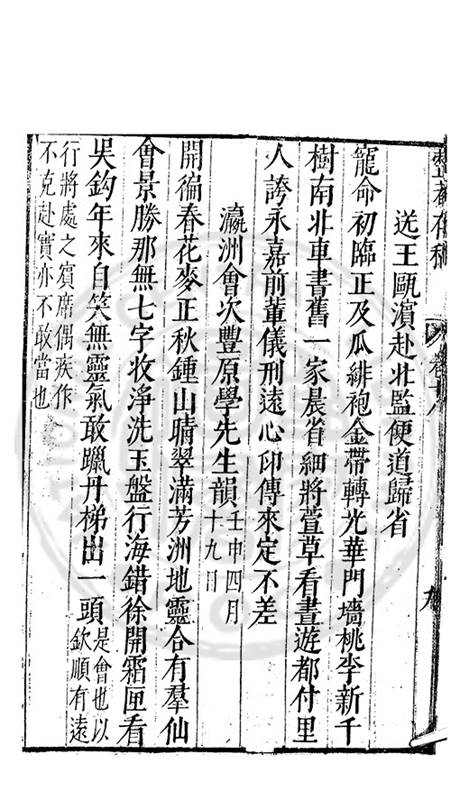 整菴存稿 卷十八 九
送王甌濵赴北監便道歸省
寵命初臨正及瓜緋袍金帶轉光華門墻桃李新千
樹南北車書舊一家晨省細將萱草看晝遊都付里
人誇永嘉前輩儀刑遠心印傳來定不差
瀛洲會次豐原學先生韻壬申四月十九日
開徧春花麥正秋鍾山晴翠滿芳洲地靈合有羣仙
會景勝那無七字收淨洗玉盤行海錯徐開霜匣看
吴鈎年來自笑無靈氣敢躐丹梯出一頭是會也以欽順有遠
行將處之賔席偶疾作不克赴實亦不敢當也